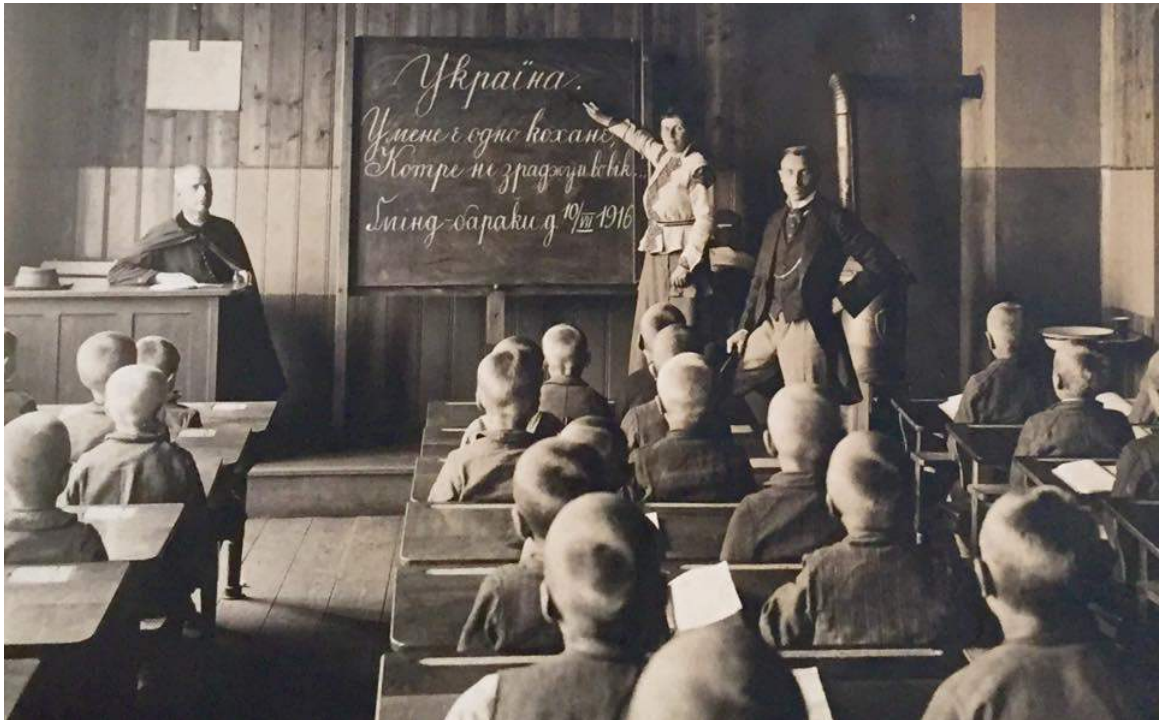 Україна.
У мене є одно кохане,
Котре не зраджу й вовік...
Ґмінд-бараки д. 10/VII 1916